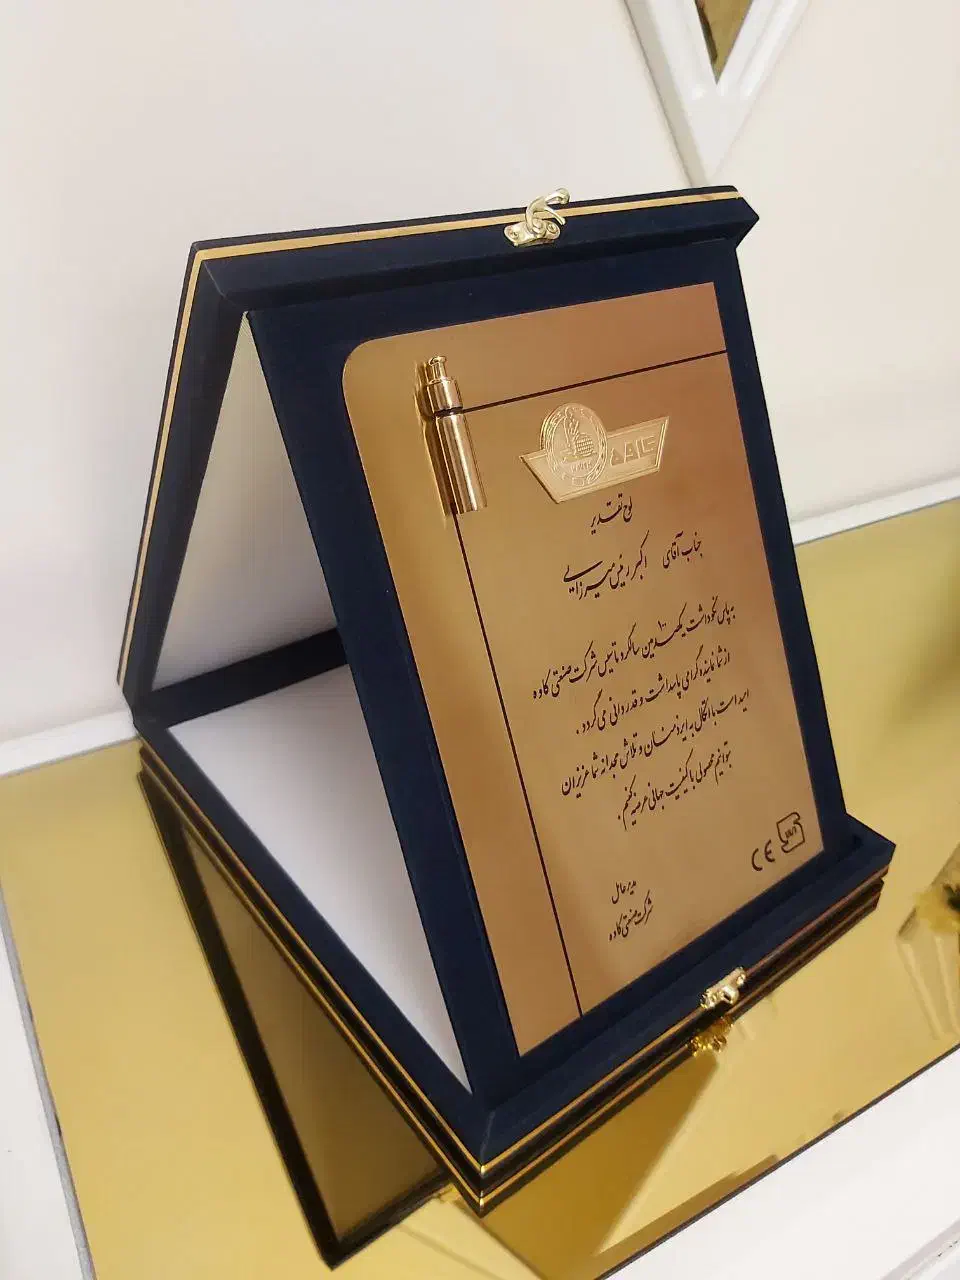 کاوه
لوح تقدیر
جناب آقای اکبر رئیس میرزایی
به پاس نکوداشت یکصدمین سالگرد تاسیس شرکت صنعتی کاوه
از شما نماینده گرامی پاسداشت و قدردانی می گردد .
امید است با اتکال به ایزد منان و تلاش مجدانه شما عزیزان
بتوانیم محصولی با کیفیت جهانی عرضه کنیم .
CE
مدیر عامل
شرکت صنعتی کاوه